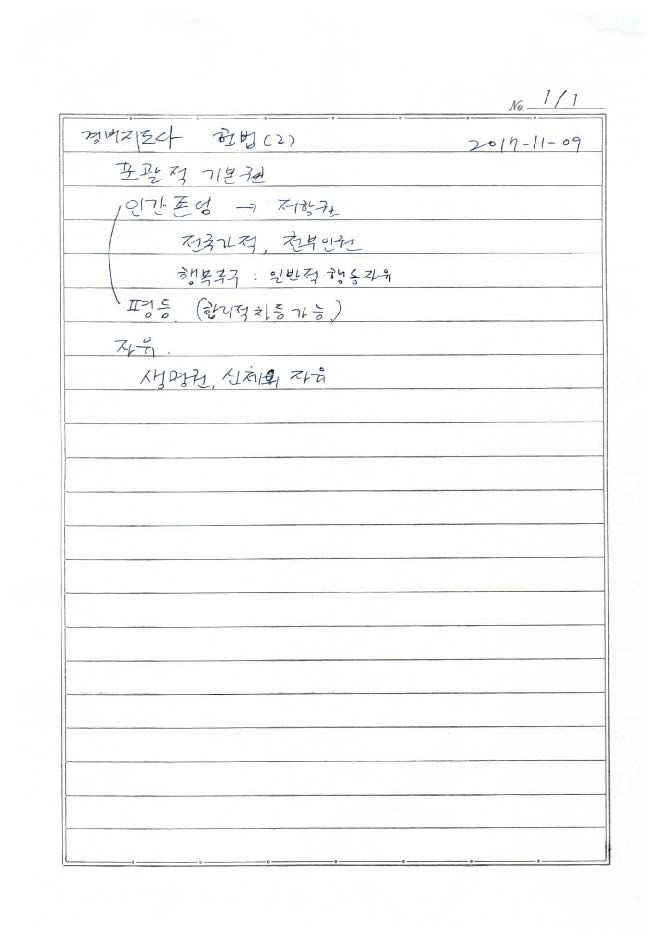 No. 1/1
경비지도사 헌법(2) 2017-11-09
포괄적 기본권
인간존엄 → 저항권
전국가적, 천부인권
행복추구 : 일반적 행동자유
평등. (합리적차등가능.)
자유.
생명권, 신체의 자유